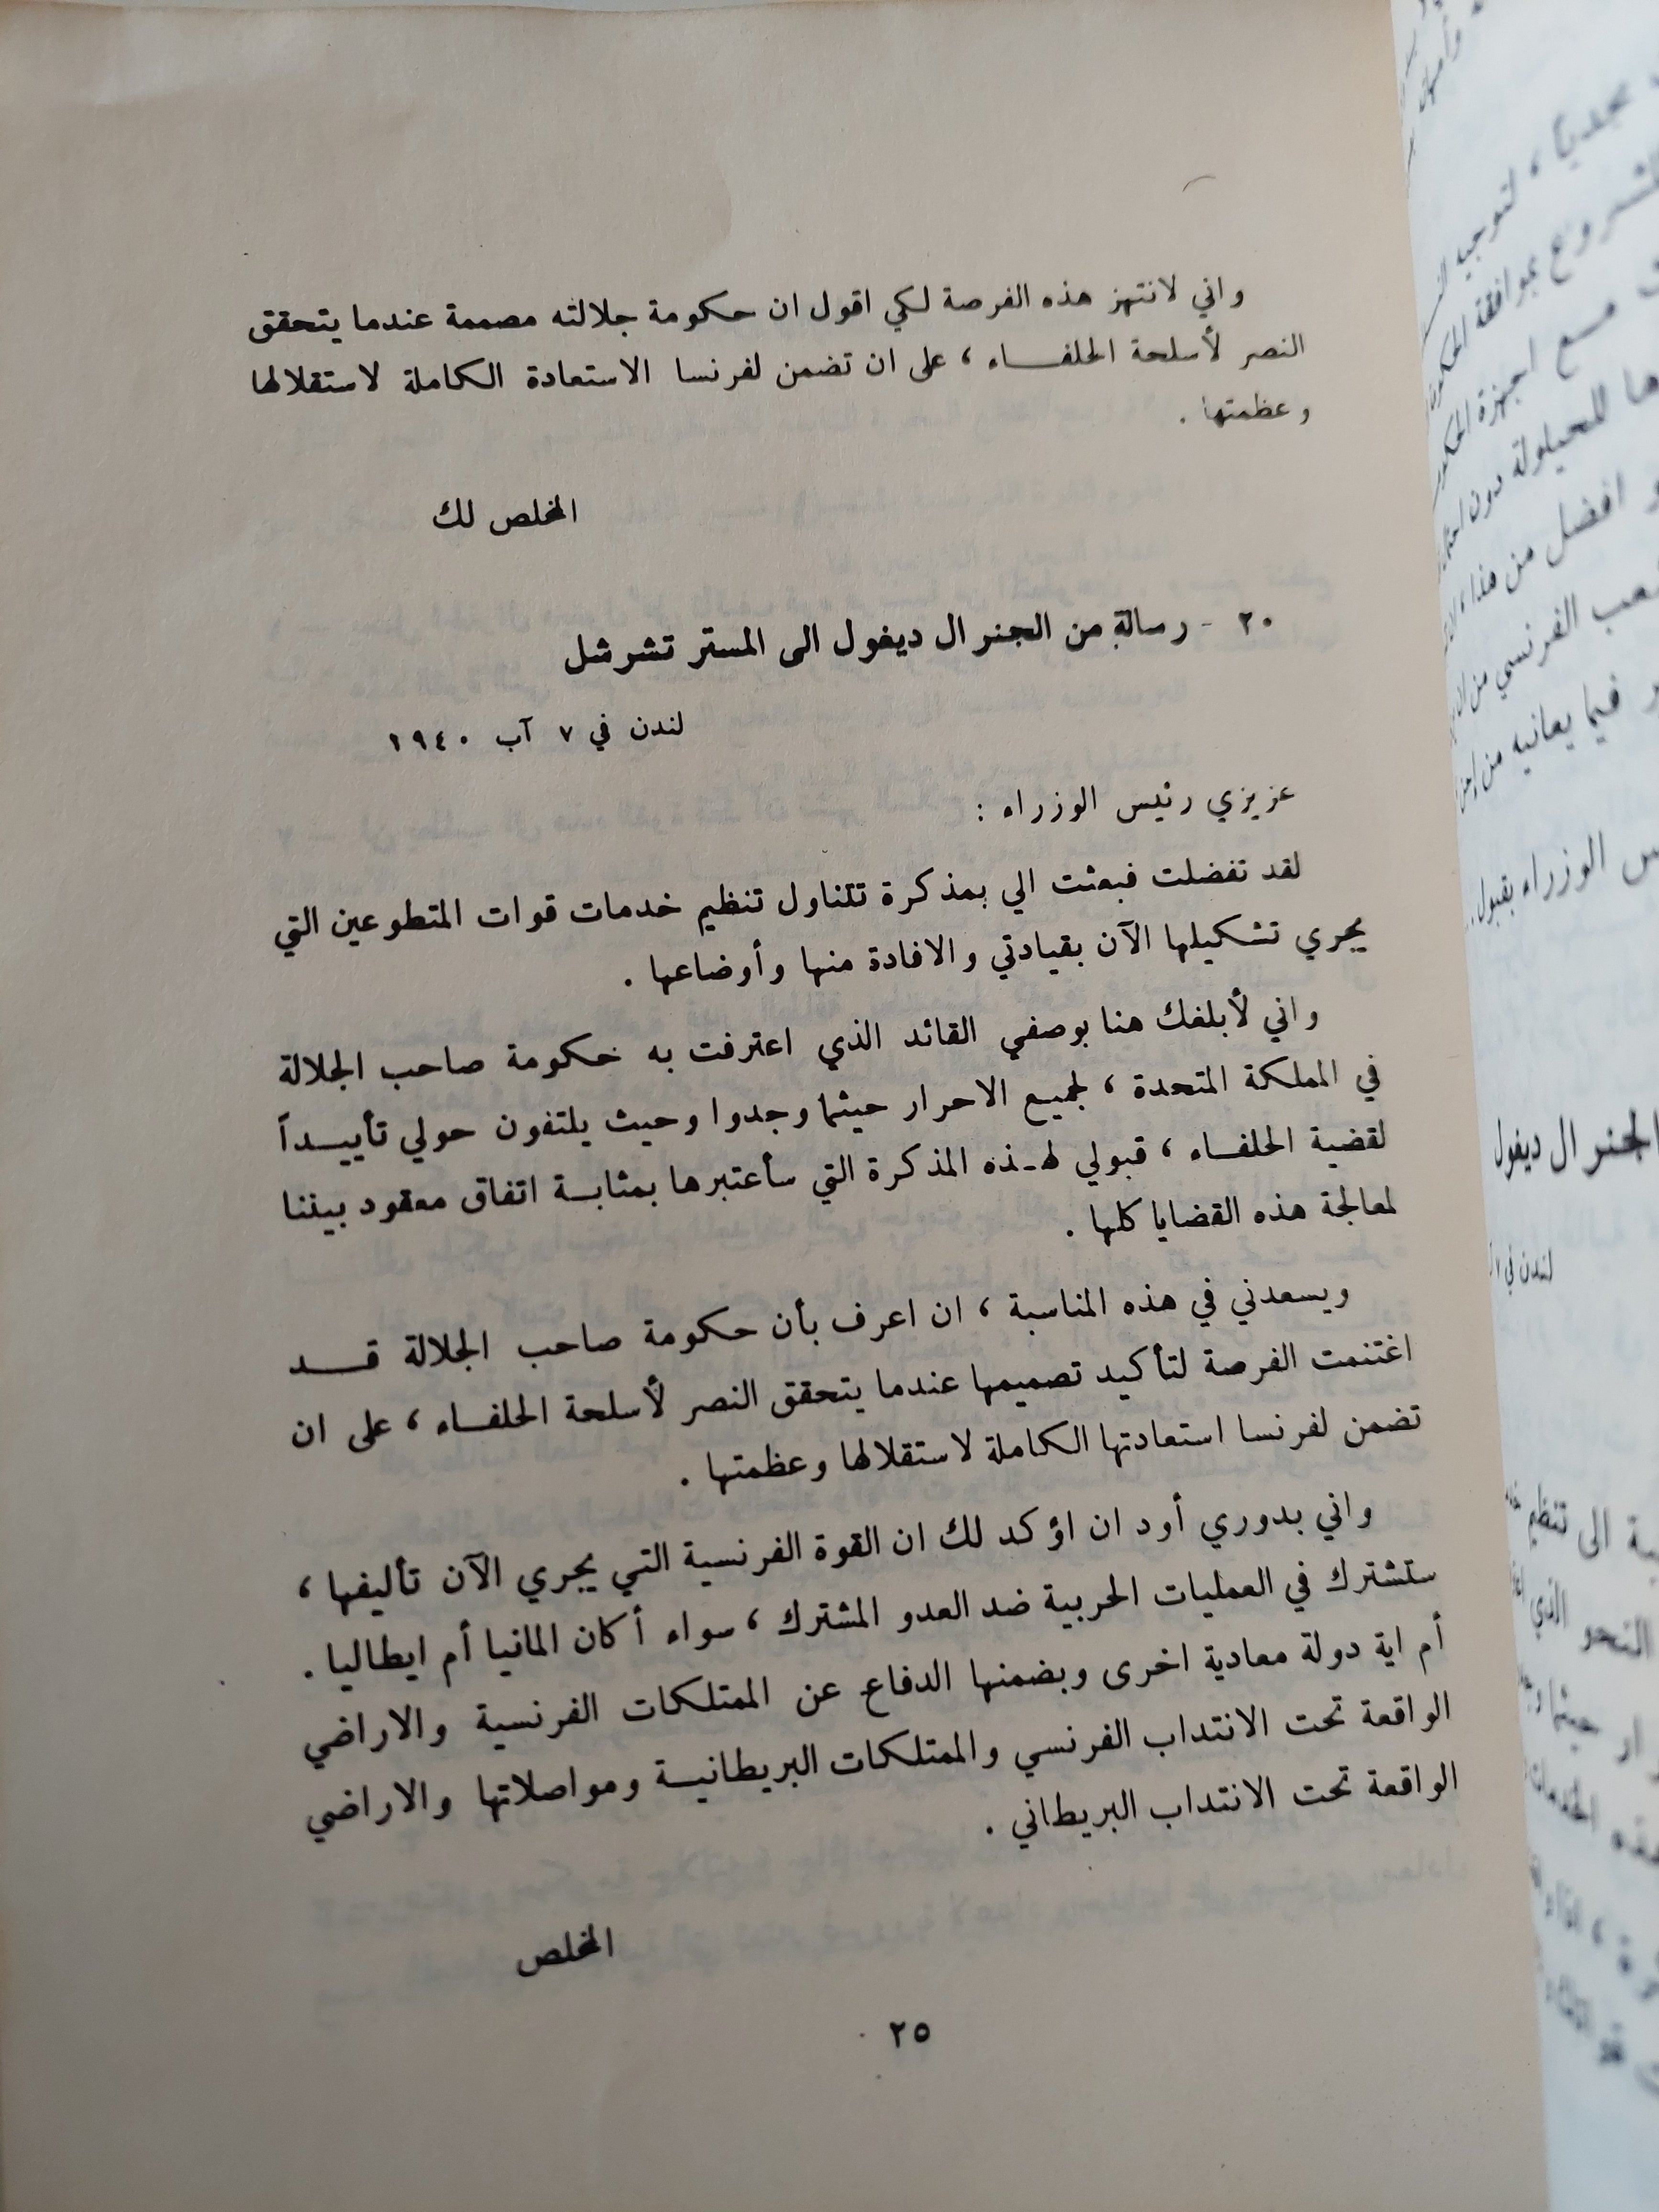 واني لانتهز هذه الفرصة لكي اقول ان حكومة جلالته مصممة عندما يتحقق
النصر لأسلحة الحلفـــاء ، على ان تضمن لفرنسا الاستعادة الكاملة لاستقلالها
وعظمتها .
المخلص لك
٢٠ - رسالة من الجنرال ديغول الى المستر تشرشل
لندن في ٧ آب ١٩٤٠
عزيزي رئيس الوزراء :
لقد تفضلت فبعثت الي بمذكرة تتناول تنظيم خدمات قوات المتطوعين التي
يجري تشكيلها الآن بقيادتي والافادة منها وأوضاعها .
واني لأبلغك هنا بوصفي القائد الذي اعترفت به حكومة صاحب الجلالة
في المملكة المتحدة ، لجميع الاحرار حيثما وجدوا وحيث يلتفون حولي تأييـداً
لقضية الحلفـاء ، قبولي لهـذه المذكرة التي سأعتبرها بمثابـة اتفاق معقود بيننا
لمعالجة هذه القضايا كلها .
ويسعدني في هذه المناسبة ، ان اعرف بأن حكومة صاحب الجلالة قـــد
اغتنمت الفرصة لتأكيد تصميمها عندما يتحقق النصر لأسلحة الحلفـــاء ، على ان
تضمن لفرنسا استعادتها الكاملة لاستقلالها وعظمتها .
واني بدوري أود ان اؤكد لك ان القوة الفرنسية التي يجري الآن تأليفها ،
ستشترك في العمليات الحربية ضد العدو المشترك ، سواء أكان المانيا أم ايطاليا .
أم اية دولة معادية اخرى وبضمنها الدفاع عن الممتلكات الفرنسية والاراضي
الواقعة تحت الانتداب الفرنسي والممتلكات البريطانيـة ومواصلاتها والاراضي
الواقعة تحت الانتداب البريطاني .
المخلص
٢٥
لتوجيه
بموافقة
مـع اجهزة
للحيلولة دون
افضل من هذا
الفرنسي من
فيما يعانيه من
الوزراء بقبول
الجنرال ديغول
لندن في
الى تنظيم
النحو الذي